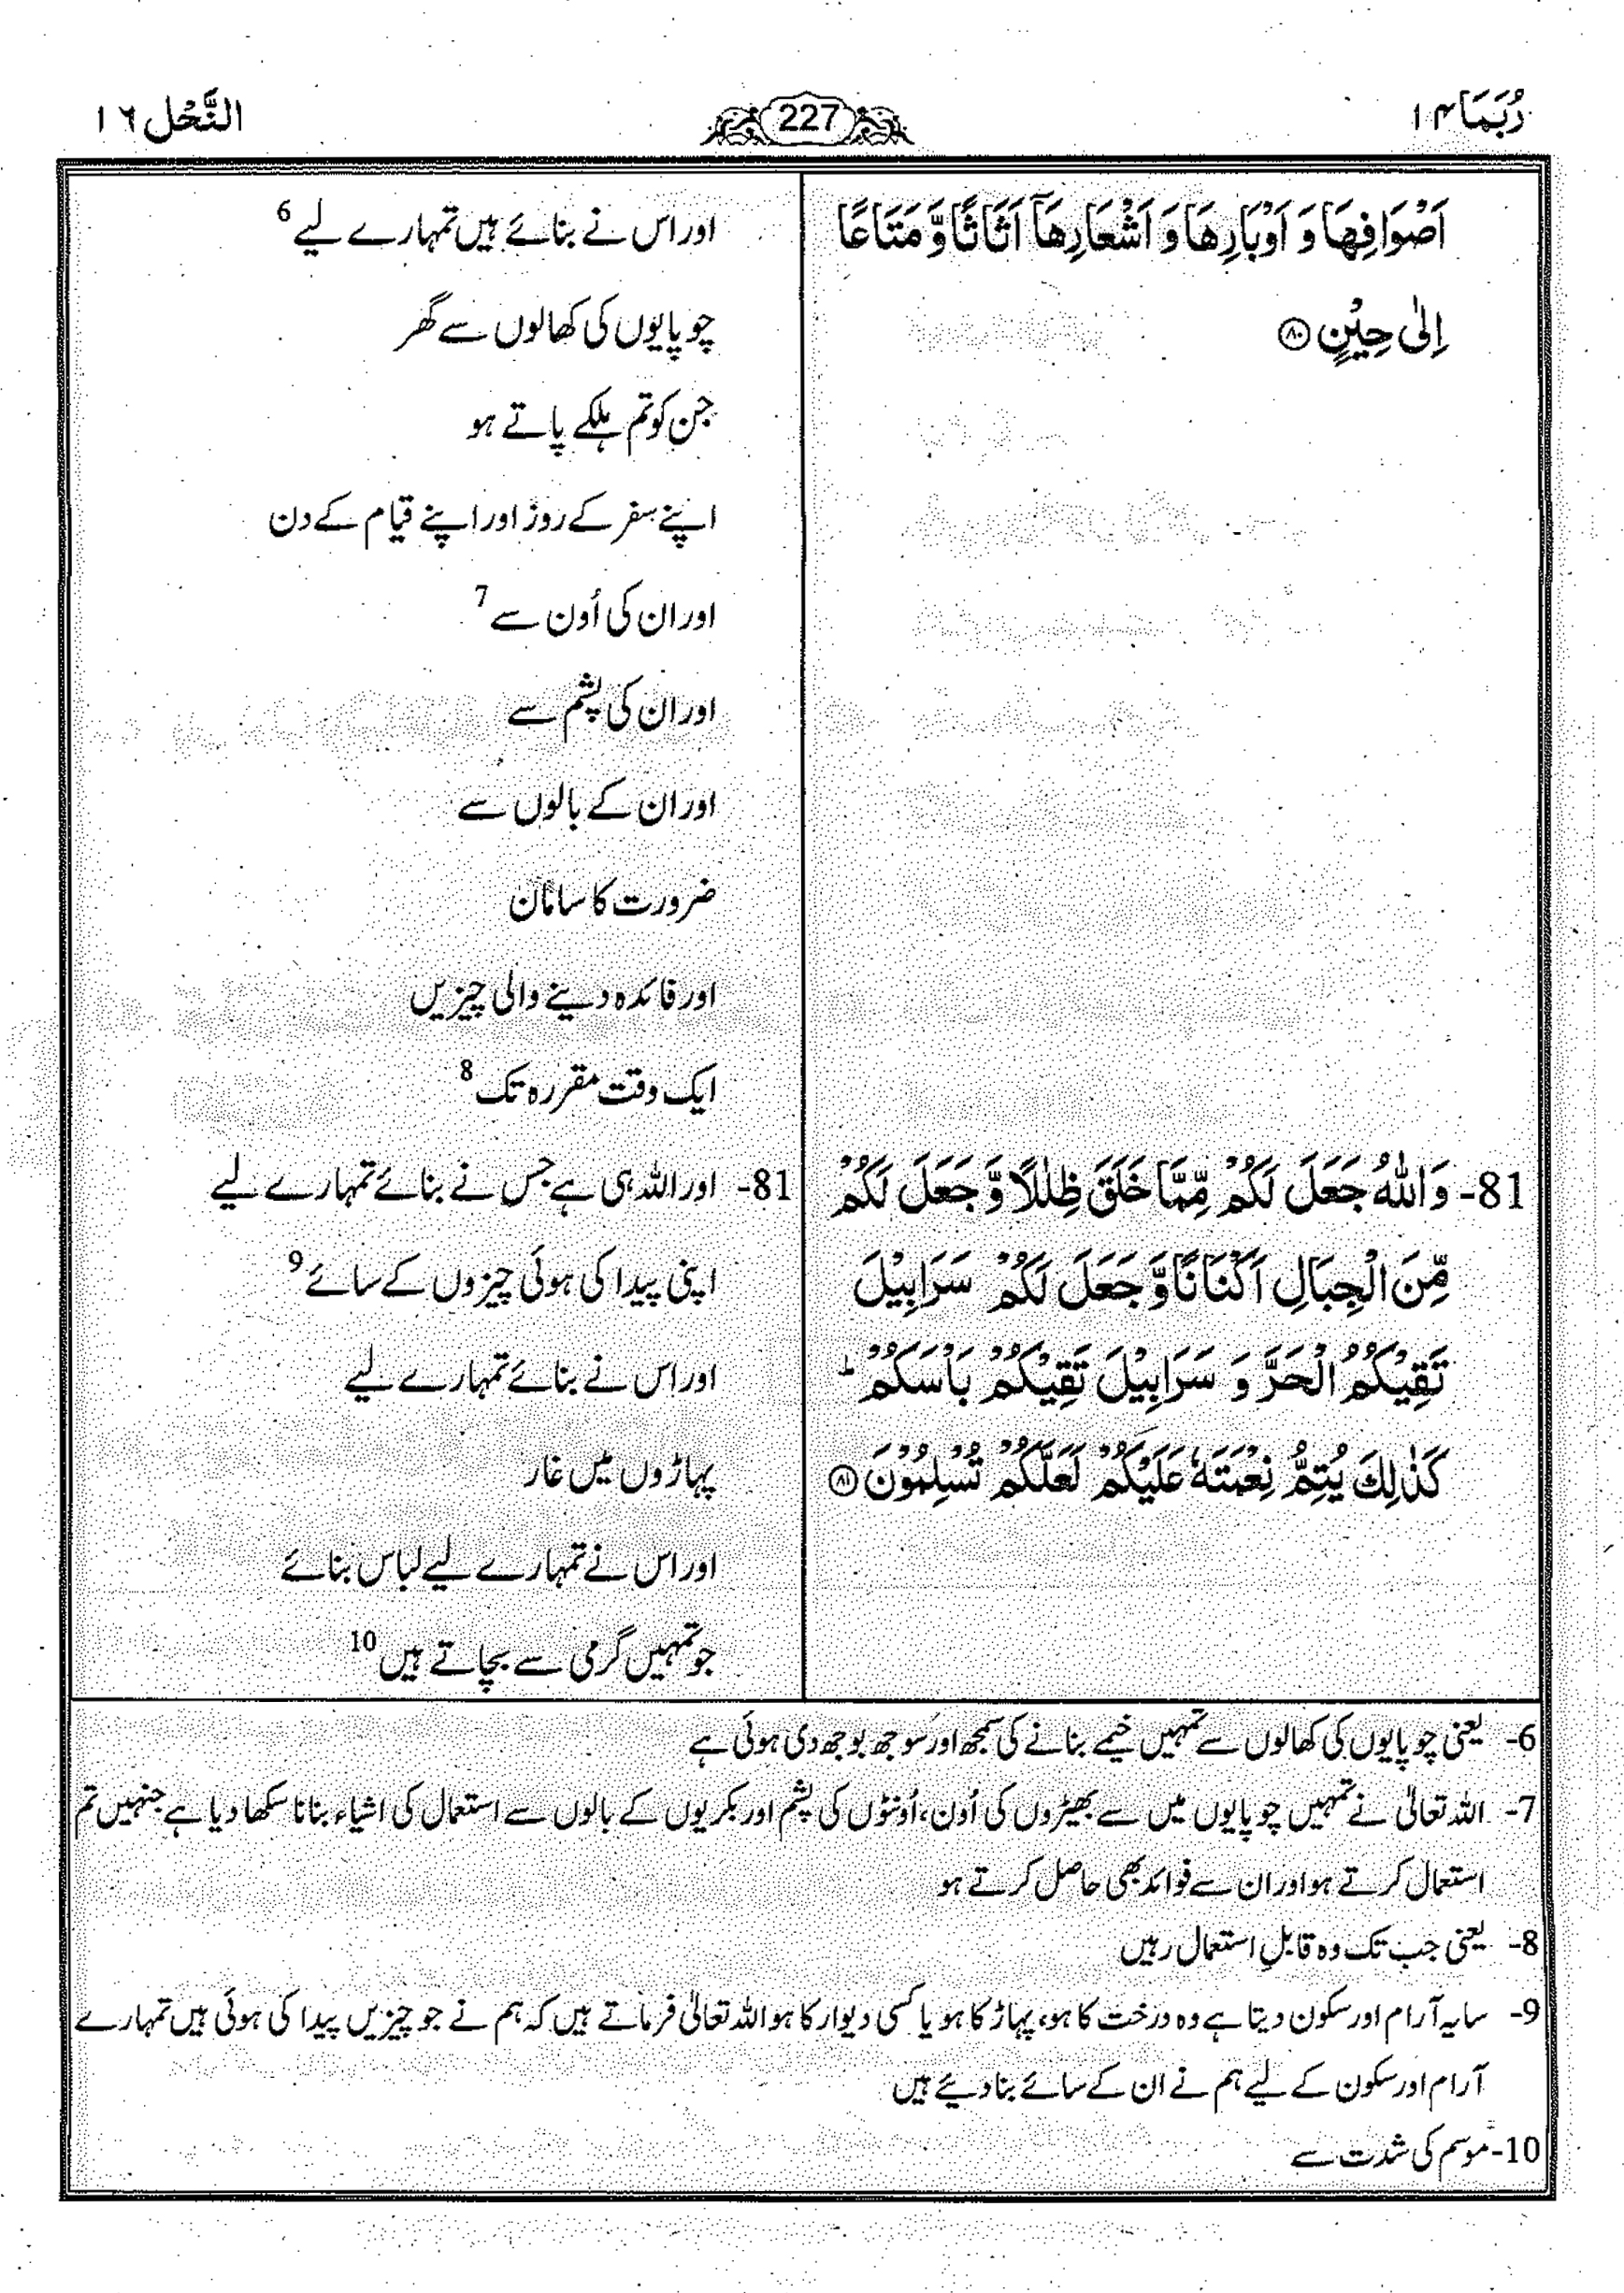 رُبَمَا ۱۴
227
النَّحْل ۱٦
اَصْوَافِهَا وَ اَوْبَارِهَا وَ اَشْعَارِهَآ اَثَاثًا وَّ مَتَاعًا
اِلٰى حِيْنٍ ۸۰
81- وَاللّٰهُ جَعَلَ لَكُمْ مِّمَّا خَلَقَ ظِلٰلًا وَّ جَعَلَ لَكُمْ
مِّنَ الْجِبَالِ اَكْنَانًا وَّ جَعَلَ لَكُمْ سَرَابِيْلَ
تَقِيْكُمُ الْحَرَّ وَ سَرَابِيْلَ تَقِيْكُمْ بَاْسَكُمْ ؕ
كَذٰلِكَ يُتِمُّ نِعْمَتَهٗ عَلَيْكُمْ لَعَلَّكُمْ تُسْلِمُوْنَ ۸۱
اور اس نے بنائے ہیں تمہارے لیے 6
چوپایوں کی کھالوں سے گھر
جن کو تم ہلکے پاتے ہو
اپنے سفر کے روز اور اپنے قیام کے دن
اور ان کی اُون سے 7
اور ان کی پشم سے
اور ان کے بالوں سے
ضرورت کا سامان
اور فائدہ دینے والی چیزیں
ایک وقت مقررہ تک 8
81- اور اللہ ہی ہے جس نے بنائے تمہارے لیے
اپنی پیدا کی ہوئی چیزوں کے سائے 9
اور اس نے بنائے تمہارے لیے
پہاڑوں میں غار
اور اس نے تمہارے لیے لباس بنائے
جو تمہیں گرمی سے بچاتے ہیں 10
6- یعنی چوپایوں کی کھالوں سے تمہیں خیمے بنانے کی سمجھ اور سوجھ بوجھ دی ہوئی ہے
7- اللہ تعالیٰ نے تمہیں چوپایوں میں سے بھیڑوں کی اُون، اُونٹوں کی پشم اور بکریوں کے بالوں سے استعمال کی اشیاء بنانا سکھا دیا ہے جنہیں تم
استعمال کرتے ہو اور ان سے فوائد بھی حاصل کرتے ہو
8- یعنی جب تک وہ قابلِ استعمال رہیں
9- سایہ آرام اور سکون دیتا ہے وہ درخت کا ہو، پہاڑ کا ہو یا کسی دیوار کا ہو اللہ تعالیٰ فرماتے ہیں کہ ہم نے جو چیزیں پیدا کی ہوئی ہیں تمہارے
آرام اور سکون کے لیے ہم نے ان کے سائے بنا دیئے ہیں
10- موسم کی شدت سے